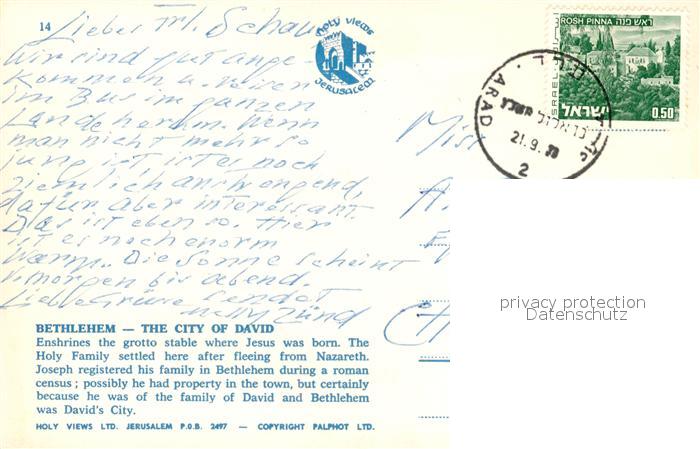 14
Lieber Fr. Schau
Wir sind gut ange-
kommen u. reisen
im Bus im ganzen
Lande herum. Wenn
man nicht mehr so
jung ist, ist es noch
ziemlich anstrengend,
dafür aber interessant.
Das ist eben so. Hier
ist es noch enorm
warm. Die Sonne scheint
v. morgen bis abend.
Liebe Grüsse sendet
Nelly Zünd
holy views
JERUSALEM
ROSH PINNA ראש פנה
ISRAEL
ישראל
0.50
ARAD
21.9.
2
Mist
BETHLEHEM — THE CITY OF DAVID
Enshrines the grotto stable where Jesus was born. The
Holy Family settled here after fleeing from Nazareth.
Joseph registered his family in Bethlehem during a roman
census ; possibly he had property in the town, but certainly
because he was of the family of David and Bethlehem
was David's City.
HOLY VIEWS LTD. JERUSALEM P.O.B. 2497 — COPYRIGHT PALPHOT LTD.
privacy protection
Datenschutz